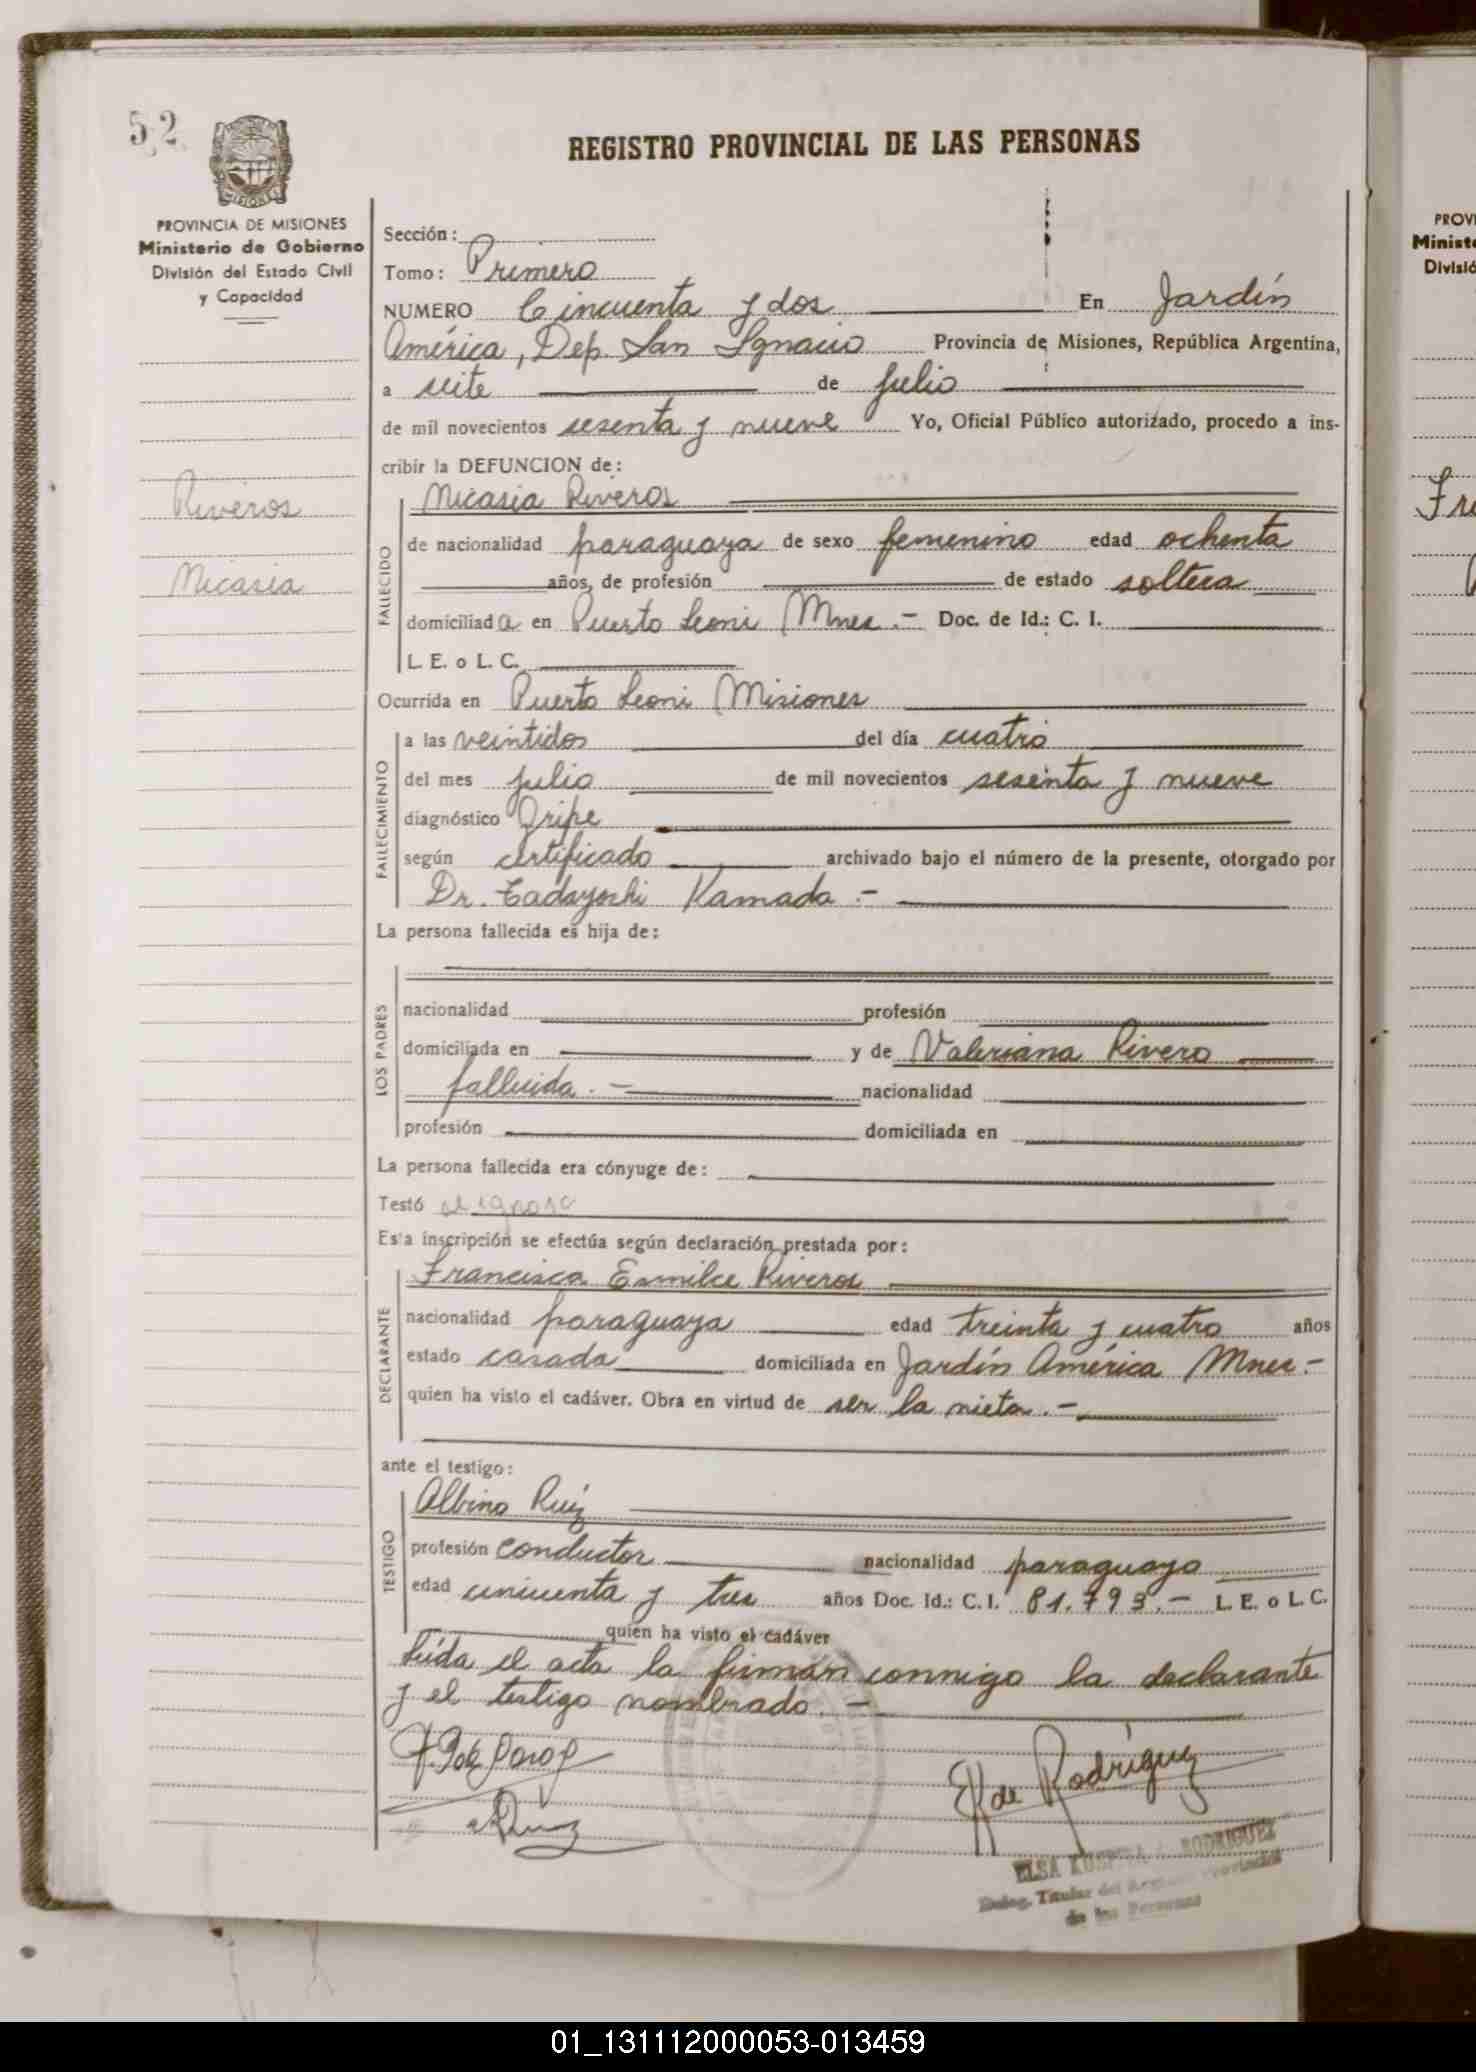 52
REGISTRO PROVINCIAL DE LAS PERSONAS
PROVINCIA DE MISIONES
Ministerio de Gobierno
División del Estado Civil
y Capacidad
Riveros
Micasia
Sección:
Tomo: Primero
NUMERO Cincuenta y dos En Jardín
América, Dep. San Ignacio Provincia de Misiones, República Argentina,
a siete de julio
de mil novecientos sesenta y nueve Yo, Oficial Público autorizado, procedo a ins-
cribir la DEFUNCION de:
FALLECIDO
Micasia Riveros
de nacionalidad paraguaya de sexo femenino edad ochenta
años, de profesión de estado soltera
domiciliada en Puerto Leoni Mnes.- Doc. de Id.: C. I.
L. E. o L. C.
Ocurrida en Puerto Leoni Misiones
FALLECIMIENTO
a las veintidos del día cuatro
del mes julio de mil novecientos sesenta y nueve
diagnóstico Gripe
según certificado archivado bajo el número de la presente, otorgado por
Dr. Tadayoshi Kamada.-
La persona fallecida es hija de:
LOS PADRES
nacionalidad profesión
domiciliada en y de Valeriana Rivero
fallecida.- nacionalidad
profesión domiciliada en
La persona fallecida era cónyuge de:
Testó se ignora
Esta inscripción se efectúa según declaración prestada por:
DECLARANTE
Francisca Esmilce Riveros
nacionalidad paraguaya edad treinta y cuatro años
estado casada domiciliada en Jardín América Mnes.-
quien ha visto el cadáver. Obra en virtud de ser la nieta.-
ante el testigo:
TESTIGO
Albino Ruiz
profesión conductor nacionalidad paraguayo
edad cincuenta y tres años Doc. Id.: C. I. 81.793.- L. E. o L. C.
quien ha visto el cadáver
Leída el acta la firman conmigo la declarante
y el testigo nombrado.-
E K de Rodríguez
ELSA RODRIGUEZ
Deleg. Titular del Provincial
de las Personas
01_131112000053-013459
PROVI
Ministe
Divisió
Fra